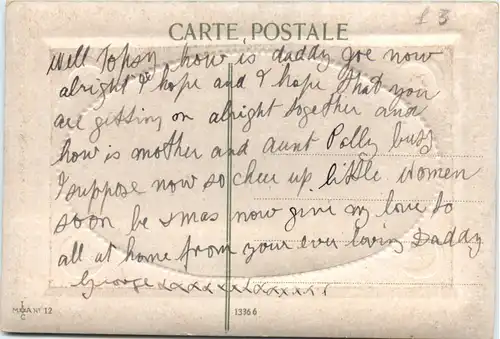 £3
CARTE POSTALE
Well Topsy how is daddy Joe now
alright I hope and I hope that you
are getting on alright together and
how is mother and aunt Polly busy
I suppose now so cheer up little women
soon be xmas now give my love to
all at home from your ever loving Daddy
George xxxxxxxxxxxxxx
Nº 12
1336 6